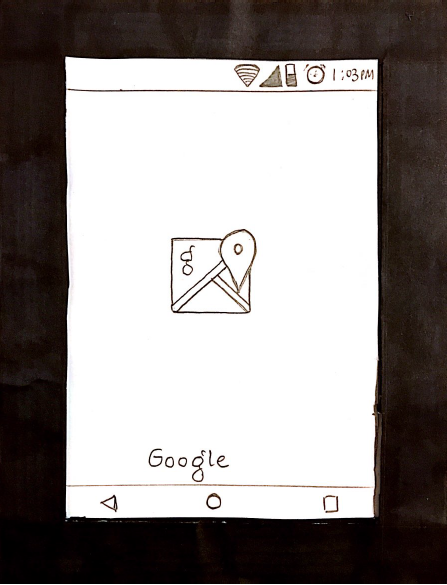 1:03 PM
g
Google